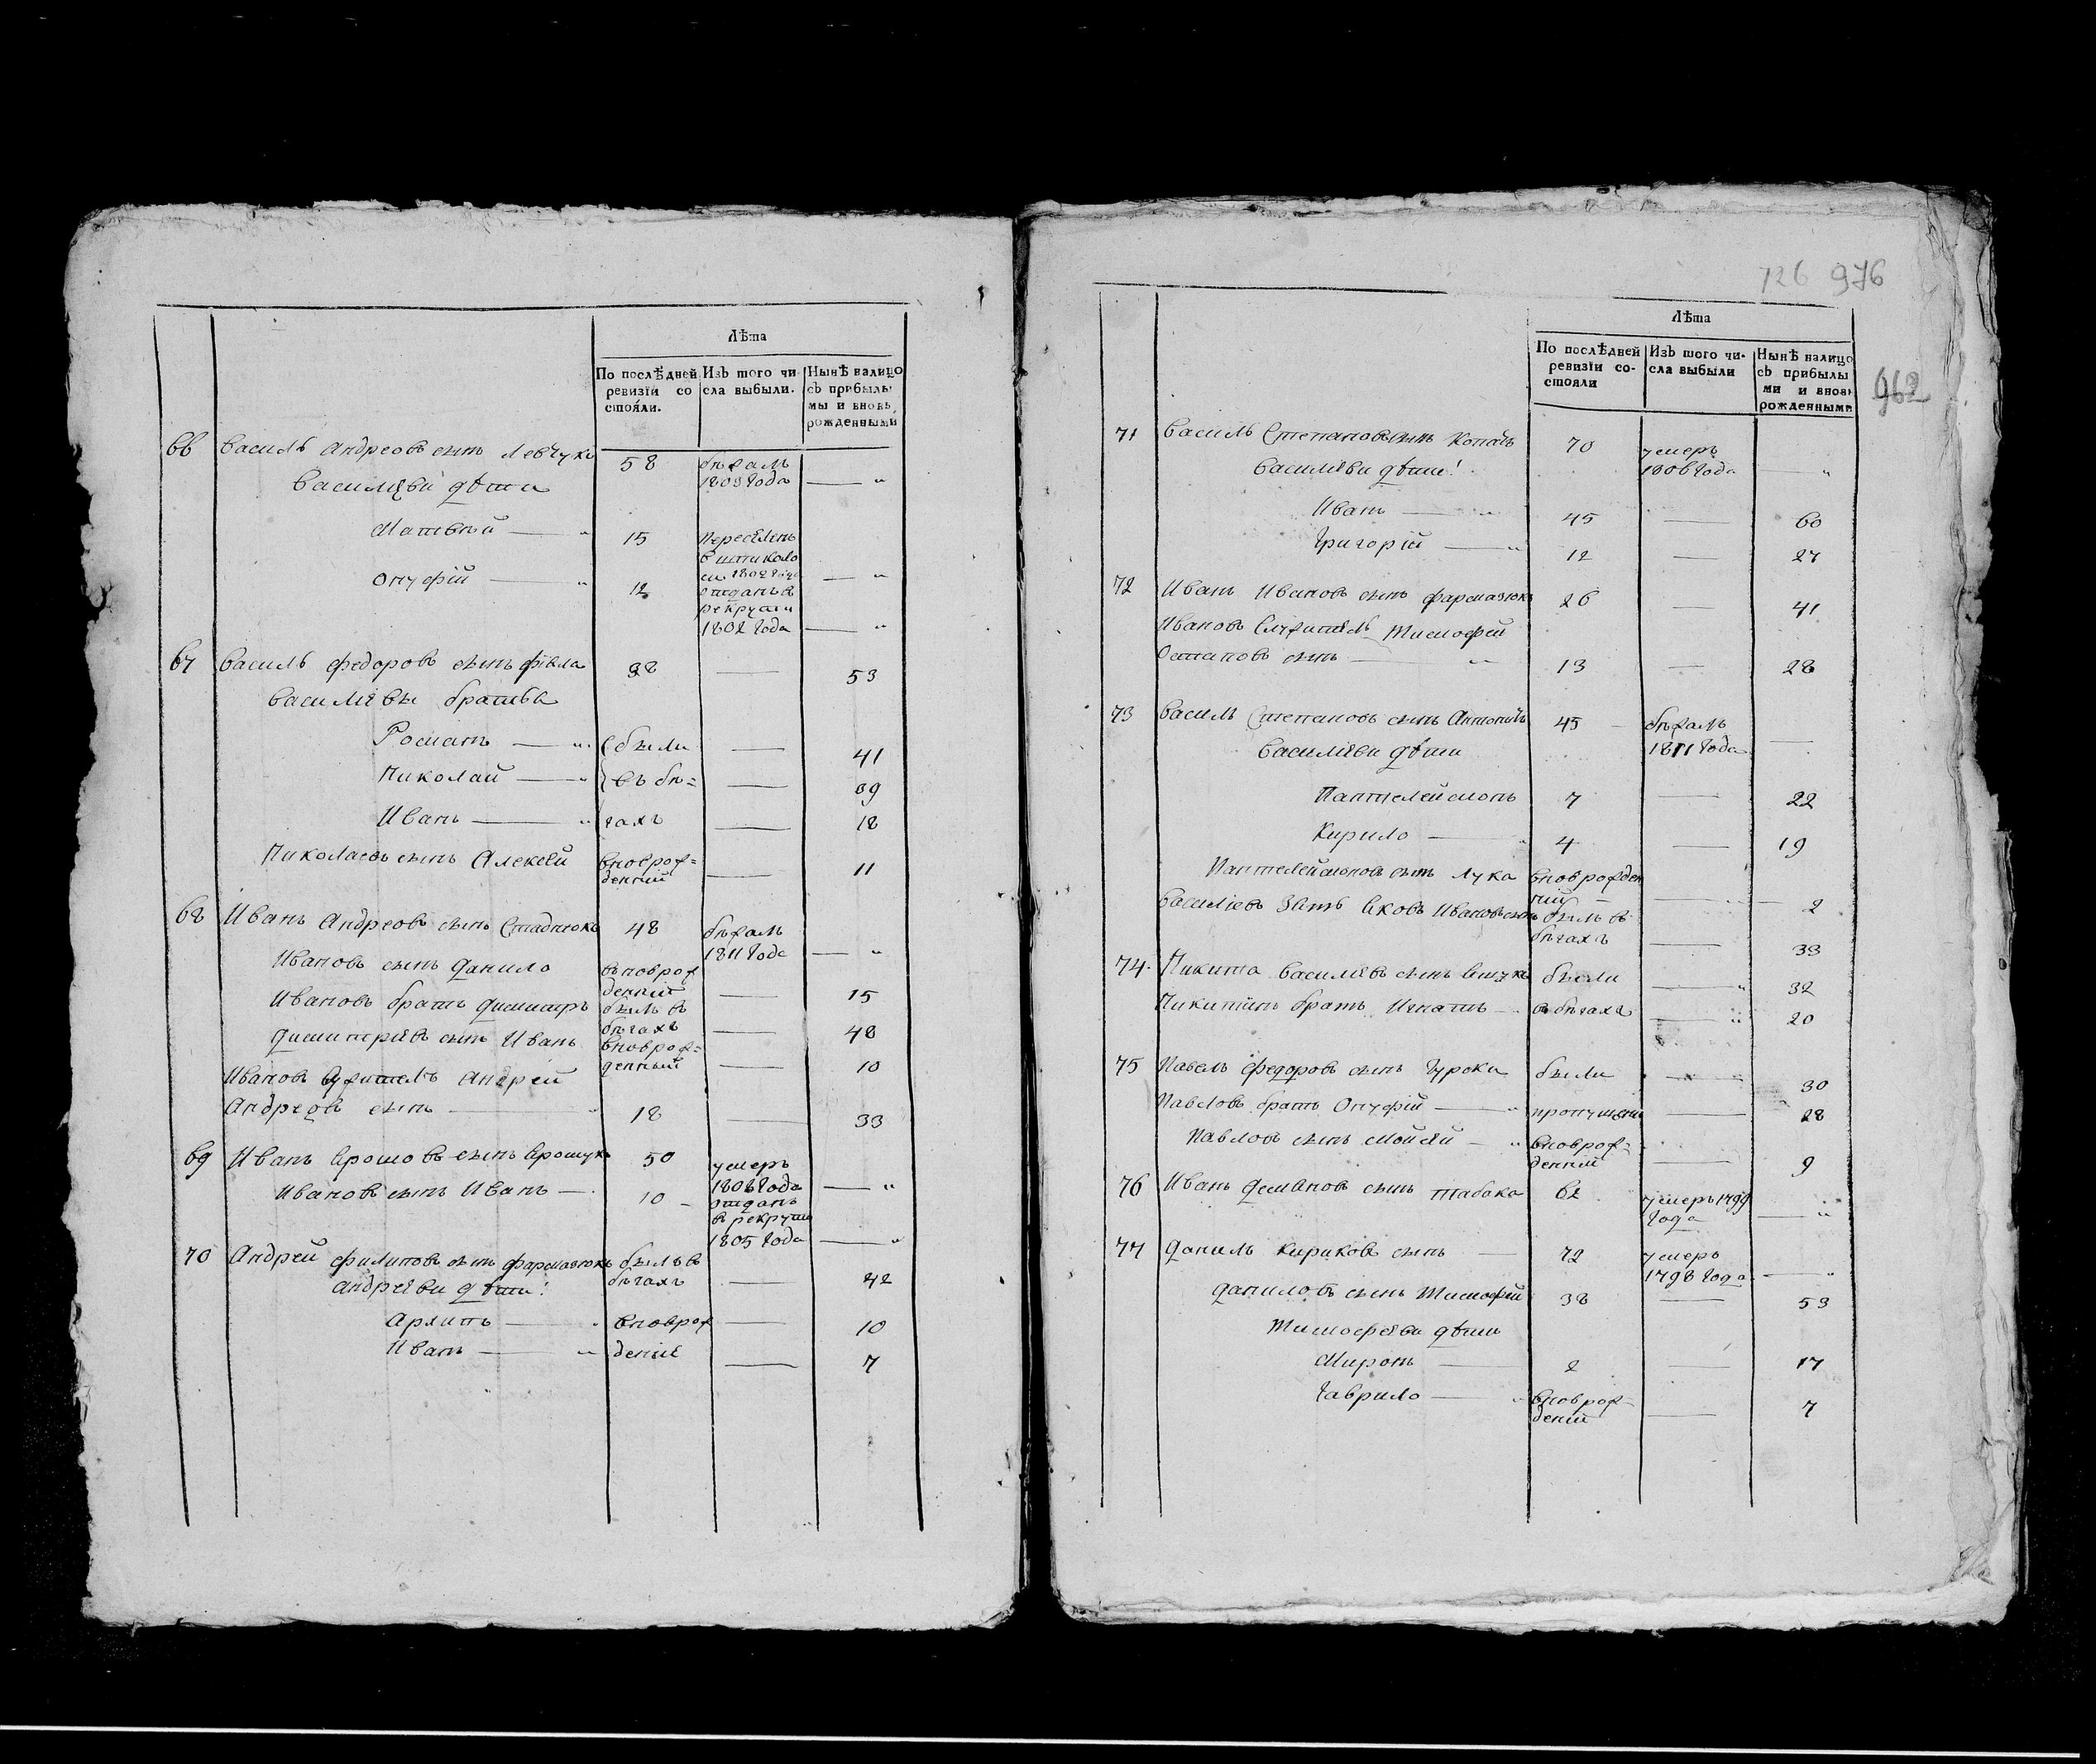 Лѣта
По послѣдней ревизїи со стояли.
Изъ того чи сла выбыли.
Нынѣ налицо съ прибылы мы и вновь рожденными
66 Василь Андреовъ сынъ Левчукъ 58 бѣжалъ
1809 года —— "
Василӗви дѣти
Матвѣй —— " 15 переселенъ
1802 года
Онуфрій —— " 12 отданъ в
рекруты
1802 года —— "
67 Василь Федоровъ сынъ 38 —— 53
Василіевы братья
Романъ —— " были —— 41
Николай —— " въ бѣ= —— 39
Иванъ —— " гахъ —— 18
Николаевъ сынъ Алексѣй вноврож=
денній —— 11
68 Иванъ Андреовъ сынъ Стаднюкъ 48 бѣжалъ
1811 года —— "
Ивановъ сынъ Данило вноврож
денній —— 15
Ивановъ братъ Димитръ былъ в
бѣгахъ —— 48
Димитріевъ сынъ Иванъ вноврож=
денный —— 10
Ивановъ служитель Андрей
Андреовъ сынъ —— " 18 —— 33
69 Иванъ Ярошовъ сынъ Ярошукъ 50 умеръ
1808 года —— "
Ивановъ сынъ Иванъ — 10 отданъ
в рекруты
1805 года —— "
70 Андрей Филиповъ сынъ Фармазюкъ былъ в
бѣгахъ —— 42
Андрѣеви дѣти:
Архипъ —— вноврож —— 10
Иванъ —— " деніе —— 7
126 976
962
Лѣта
По послѣдней ревизїи со- стояли
Изъ того чи- сла выбыли
Нынѣ налицо съ прибылы ми и вновь рожденными
71 Василь Степановъ сынъ Копачъ 70 умеръ
1806 года —— "
Василіеви дѣти:
Иванъ —— " 45 —— 60
Григорій —— " 12 —— 27
72 Иванъ Ивановъ сынъ Фармазюкъ 26 —— 41
Ивановъ служитель Тимофей
Остаповъ сынъ —— " 13 —— 28
73 Василь Степановъ сынъ 45 бѣжалъ
1811 года ——
Василіеви дѣти
Пантелеймонъ 7 —— 22
Кирило —— 4 —— 19
Пантелеймоновъ сынъ Лука вноврожден
ній —— 2
Василіевъ зять Яковъ Ивановъ сынъ былъ в
бѣгахъ —— 33
74. Никита Василіевъ сынъ были —— " 32
Никитинъ братъ Игнатъ — в бѣгахъ —— " 20
75 Павелъ Федоровъ сынъ были —— 30
Павловъ братъ Онуфрій —— " пропущени —— 28
Павловъ сынъ Мойсей — " вноврож=
денній —— 9
76 Иванъ Деміяновъ сынъ Табака 62 умеръ 1799
года —— "
77 Данилъ Кириковъ сынъ —— 72 умеръ
1798 года —— "
Даниловъ сынъ Тимофей 38 —— 53
Тимофеѣви дѣти
Миронъ —— 2 —— 17
Гаврило —— " вноврож=
деній —— 7